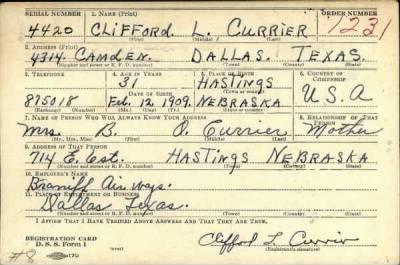 SERIAL NUMBER 1. NAME (Print) ORDER NUMBER
4420 CLIFFORD L. CURRIER 1231
(First) (Middle) (Last)
2. ADDRESS (Print)
4314 CAMDEN. DALLAS. TEXAS.
(Number and street or R. F. D. number) (Town) (County) (State)
3. TELEPHONE 4. AGE IN YEARS 5. PLACE OF BIRTH 6. COUNTRY OF CITIZENSHIP
31 HASTINGS
DATE OF BIRTH (Town or county)
875018 Feb. 12 1909. NEBRASKA U.S.A
(Exchange) (Number) (Mo.) (Day) (Yr.) (State or country)
7. NAME OF PERSON WHO WILL ALWAYS KNOW YOUR ADDRESS 8. RELATIONSHIP OF THAT PERSON
Mrs. B. O. Currier Mother
(Mr., Mrs., Miss) (First) (Middle) (Last)
9. ADDRESS OF THAT PERSON
714 E. HASTINGS NEBRASKA
(Number and street or R. F. D. number) (Town) (County) (State)
10. EMPLOYER'S NAME
Braniff Airways.
11. PLACE OF EMPLOYMENT OR BUSINESS
Dallas Texas.
(Number and street or R. F. D. number) (Town) (County) (State)
I AFFIRM THAT I HAVE VERIFIED ABOVE ANSWERS AND THAT THEY ARE TRUE.
REGISTRATION CARD
D. S. S. Form 1 Clifford L. Currier
#8 (Registrant's signature)